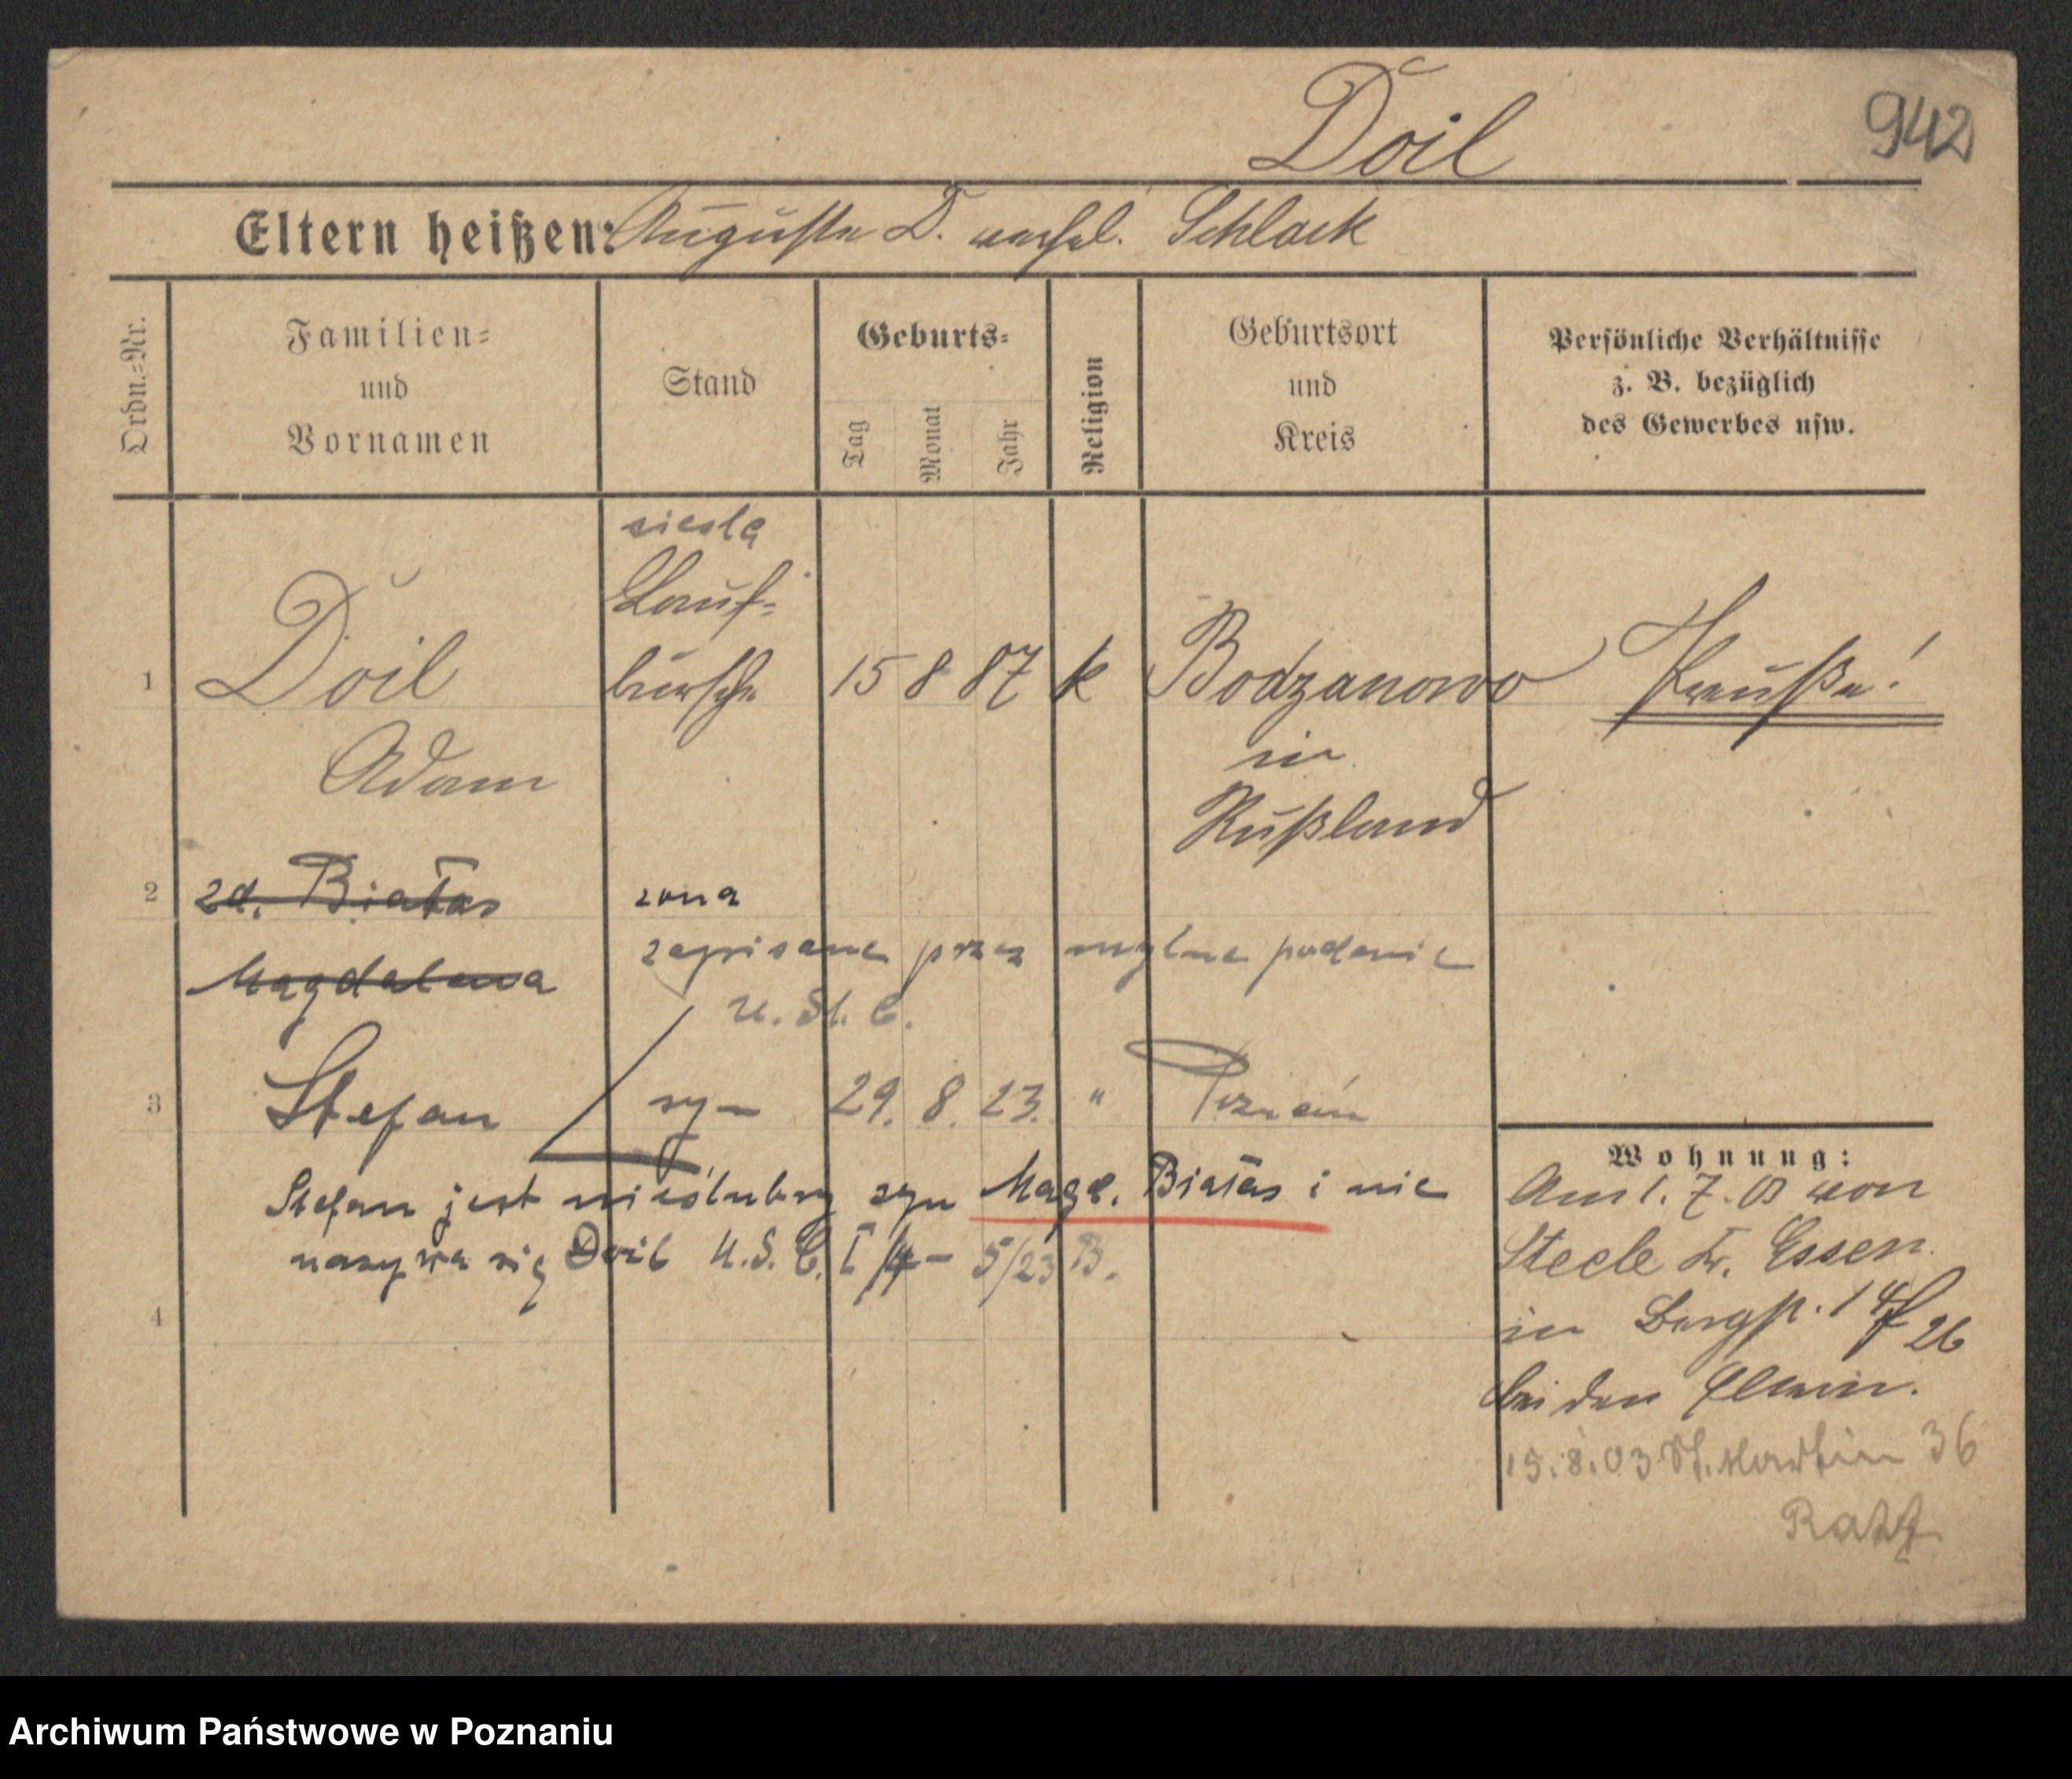 Doil
942
Eltern heißen: Auguste D. verehel. Schlack
Ordn.-Nr.
Familien-
und
Vornamen
Stand
Geburts-
Tag
Monat
Jahr
Religion
Geburtsort
und
Kreis
Persönliche Verhältnisse
z. B. bezüglich
des Gewerbes usw.
cieśla
Lauf-
1 Doil bursche 15 8 87 k Bodzanowo Preuße!
Adam in
Rußland
2 zd. Białas żona
Magdalena zapisane przez mylne podanie
U. St. C.
3 Stefan syn 29. 8. 23. " Poznań
Stefan jest nieślubny syn Magd. Białas i nie
nazywa się Doil U.S.C. I/4 - 5/23 B.
4
Wohnung:
Am 1. 7. 03 von
Steele Kr. Essen
in Bergstr. 14
26
bei den Eltern.
15.8.03 St. Martin 36